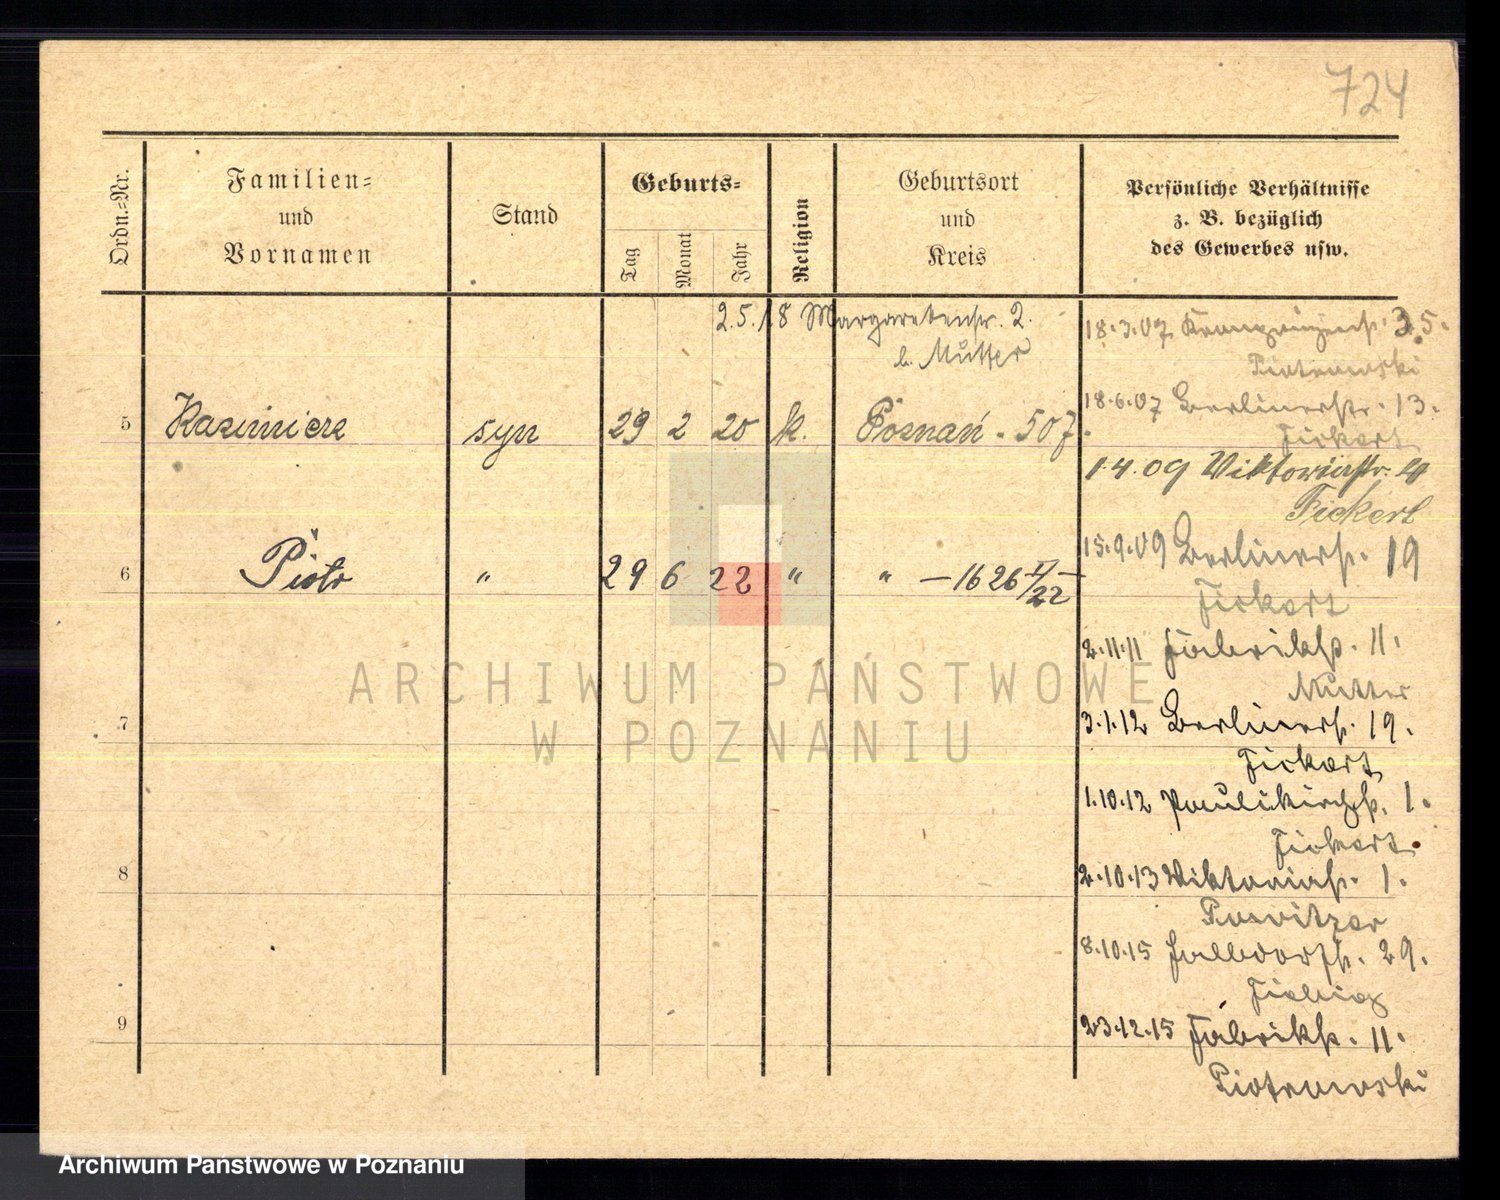 724
Ordn.-Nr.
Familien-
und
Vornamen
Stand
Geburts-
Tag
Monat
Jahr
Religion
Geburtsort
und
Kreis
Persönliche Verhältnisse
z. B. bezüglich
des Gewerbes usw.
2.5.18 Margaretenstr. 2.
b. Mutter
18.3.07 Kronprinzenstr. 35.
Piotrowski
18.6.07 Berlinerstr. 13.
Fickert
5 Kazimierz syn 29 2 20 k. Poznań - 507.
1.4.09 Viktoriastr.
Fickert
15.9.09 Berlinerstr. 19
Fickert
6 Piotr " 29 6 22 " " — 1626 V/22 —
2.11.11 Fabrikstr. 11.
Mutter
7
3.1.12 Berlinerstr. 19.
Fickert
1.10.12 Paulikirchstr. 1.
Fickert
8
2.10.13 Viktoriastr. 1.
8.10.15 29.
9
23.12.15 Fabrikstr. 11.
Piotrowski
ARCHIWUM PAŃSTWOWE
W POZNANIU
Archiwum Państwowe w Poznaniu